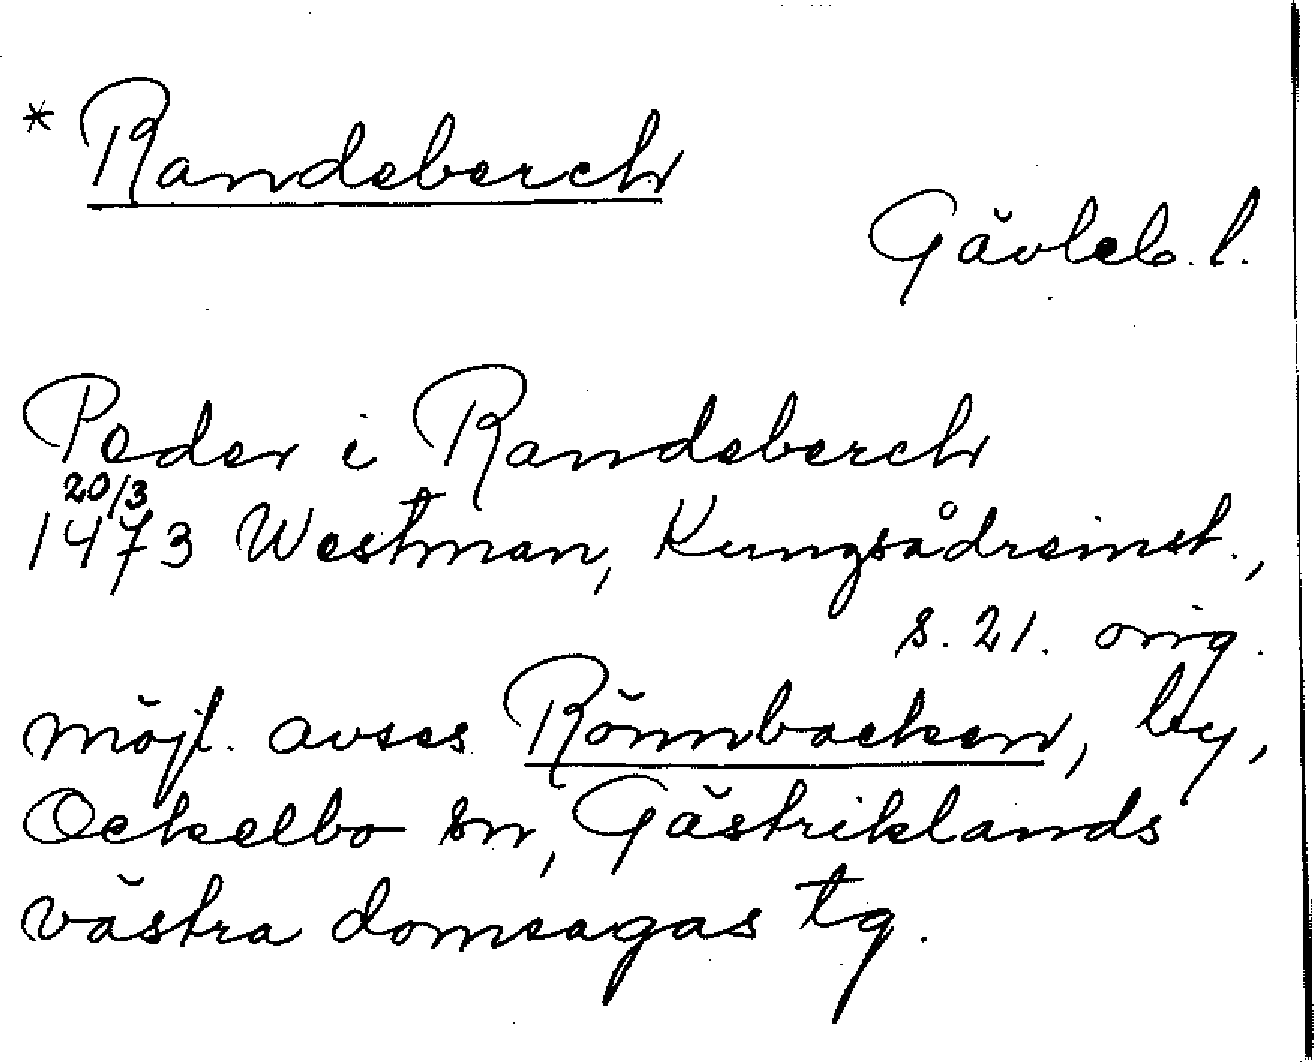 * Randeberch
Gävleb. l.
Peder i Randeberch
20/3
1473 Westman, Kungsådreinst.,
s. 21. orig.
möjl. avses Rönnbacken, by,
Ockelbo sn, Gästriklands
västra domsagas tg.